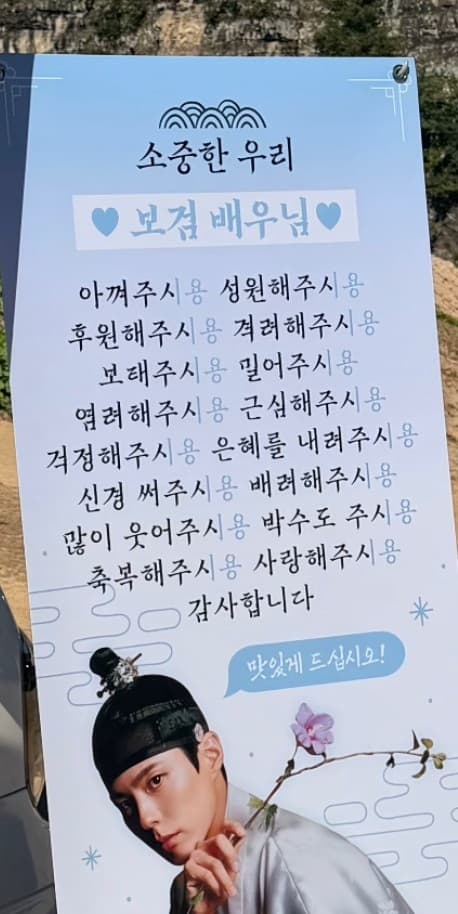 소중한 우리
♥ 보검 배우님 ♥
아껴주시용 성원해주시용
후원해주시용 격려해주시용
보태주시용 밀어주시용
염려해주시용 근심해주시용
걱정해주시용 은혜를 내려주시용
신경 써주시용 배려해주시용
많이 웃어주시용 박수도 주시용
축복해주시용 사랑해주시용
감사합니다
맛있게 드십시오!